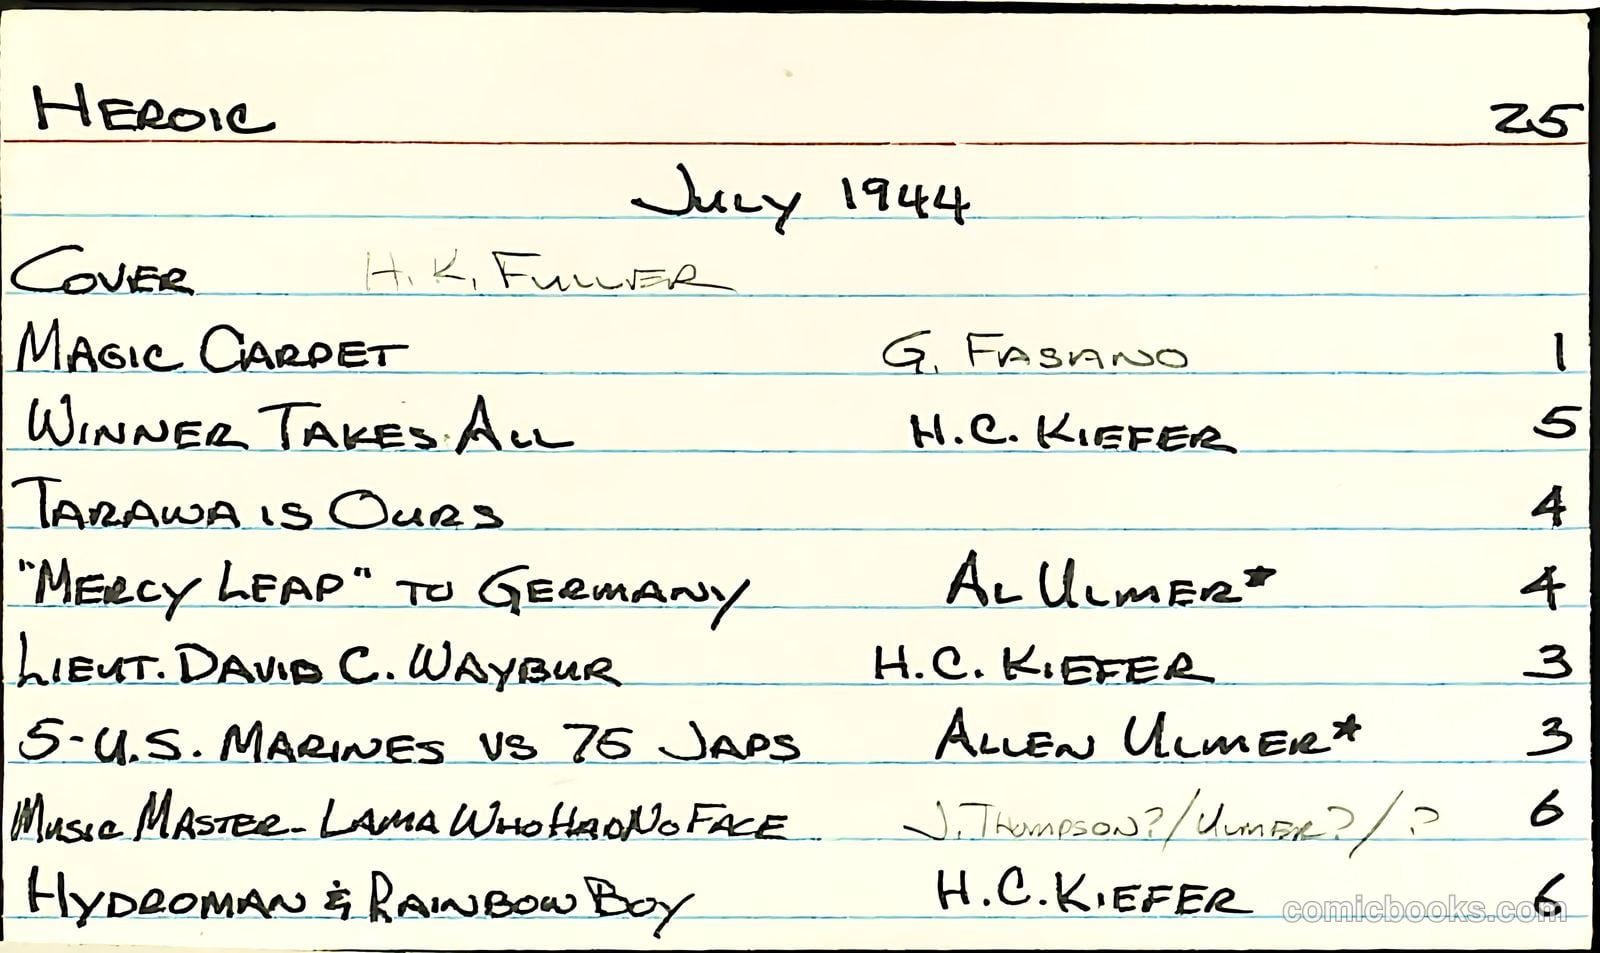 HEROIC 25
JULY 1944
COVER H. K. FULLER
MAGIC CARPET G. FASANO 1
WINNER TAKES ALL H.C. KIEFER 5
TARAWA IS OURS 4
"MERCY LEAP" TO GERMANY AL ULMER* 4
LIEUT. DAVID C. WAYBUR H.C. KIEFER 3
5-U.S. MARINES VS 75 JAPS ALLEN ULMER* 3
MUSIC MASTER - LAMA WHO HAD NO FACE J. THOMPSON?/ULMER?/? 6
HYDROMAN & RAINBOW BOY H.C. KIEFER 6
comicbooks.com